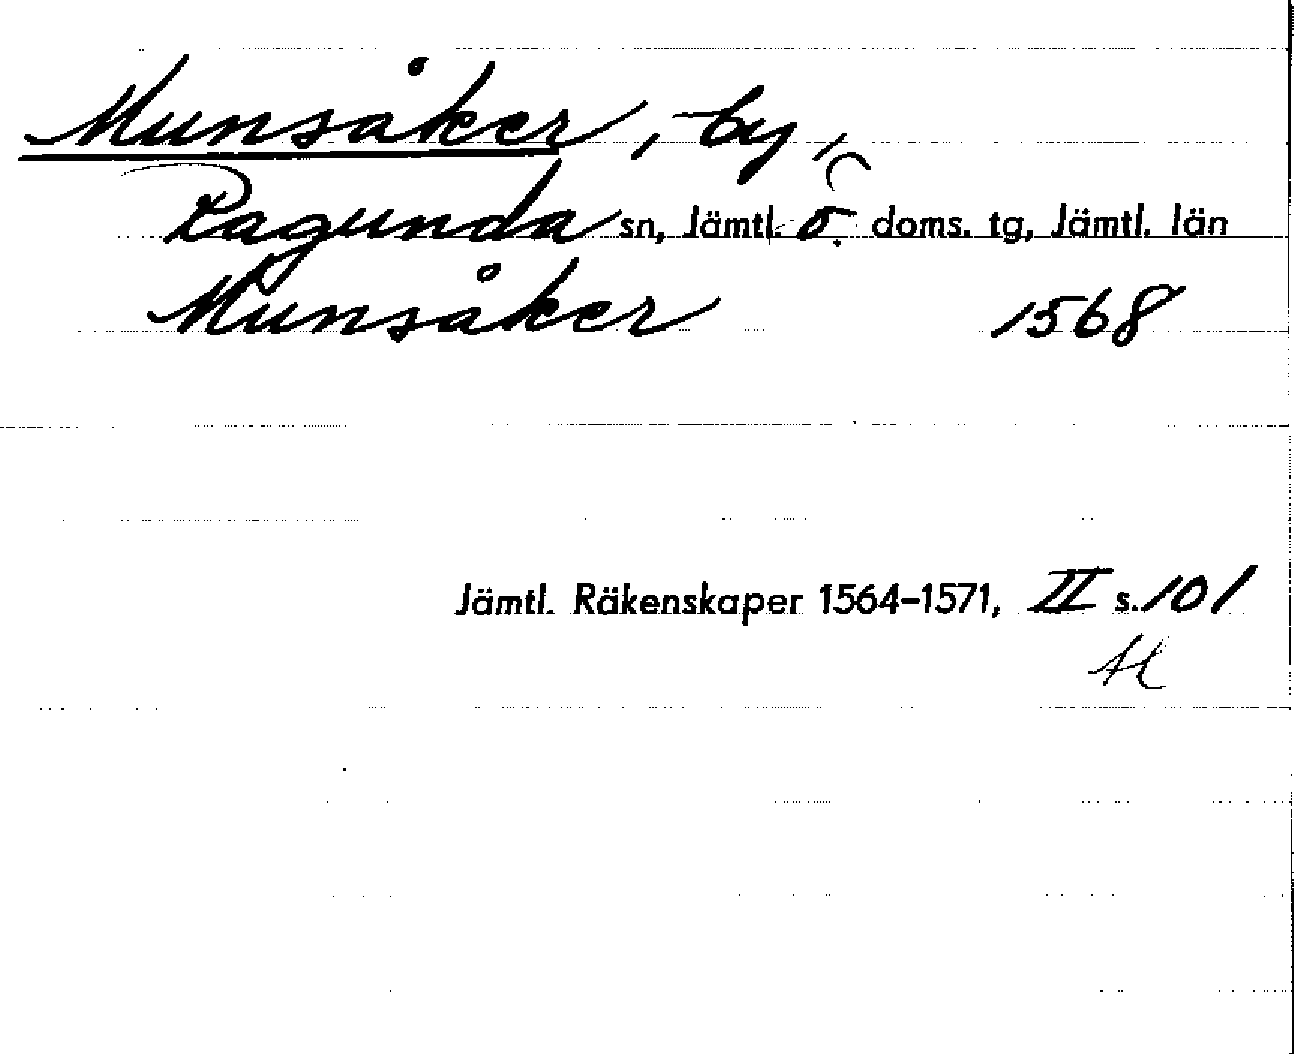 Munsåker, by,
Ragunda sn, Jämtl. ö. doms. tg, Jämtl. län
Munsåker 1568
Jämtl. Räkenskaper 1564-1571, II s. 101